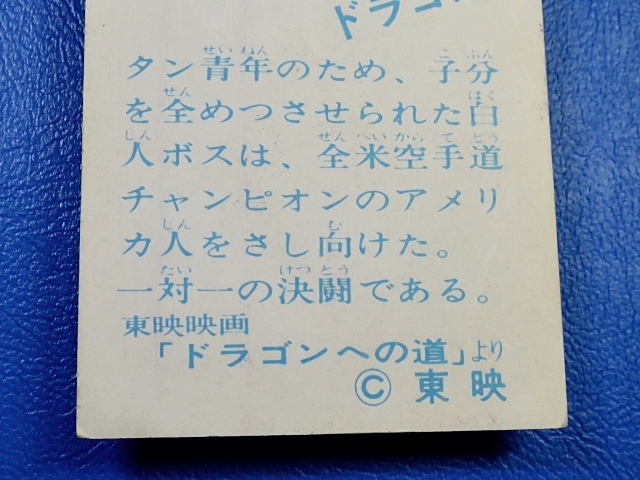 ドラゴン
タン青年のため、子分
を全めつさせられた白
人ボスは、全米空手道
チャンピオンのアメリ
カ人をさし向けた。
一対一の決闘である。
東映映画
「ドラゴンへの道」より
©東映